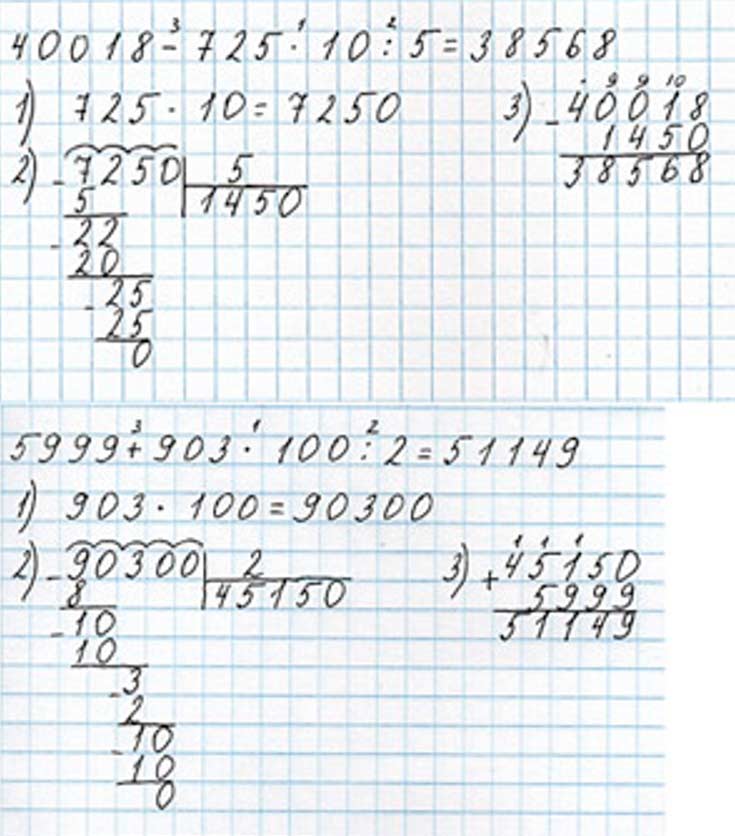 3 1 2
40018 - 725 · 10 : 5 = 38568
1) 725 · 10 = 7250
2) - 7250 | 5
5 | 1450
- 22
20
- 25
25
0
3) . 9 9 10
- 40018
1450
38568
3 1 2
5999 + 903 · 100 : 2 = 51149
1) 903 · 100 = 90300
2) - 90300 | 2
8 | 45150
- 10
10
- 3
2
- 10
10
0
3) 1 1 1
+ 45150
5999
51149